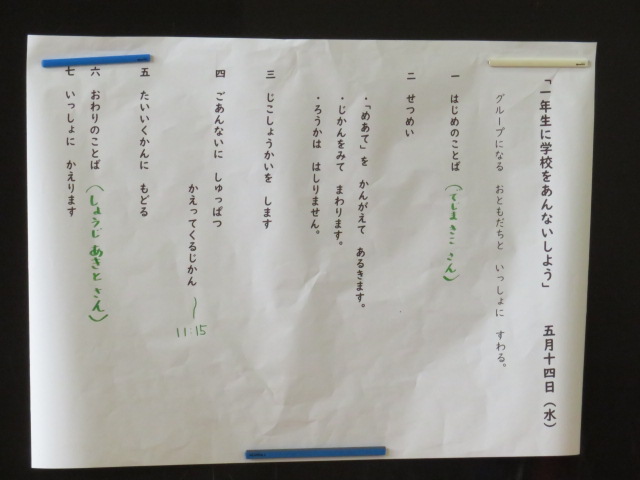 「一年生に学校をあんないしよう」　五月十四日（水）
グループになる　おともだちと　いっしょに　すわる。
一　はじめのことば（てしま きこ さん）
二　せつめい
・「めあて」を　かんがえて　あるきます。
・じかんをみて　まわります。
・ろうかは　はしりません。
三　じこしょうかいを　します
四　ごあんないに　しゅっぱつ
かえってくるじかん　〜11:15
五　たいいくかんに　もどる
六　おわりのことば（しょうじ あきと さん）
七　いっしょに　かえります